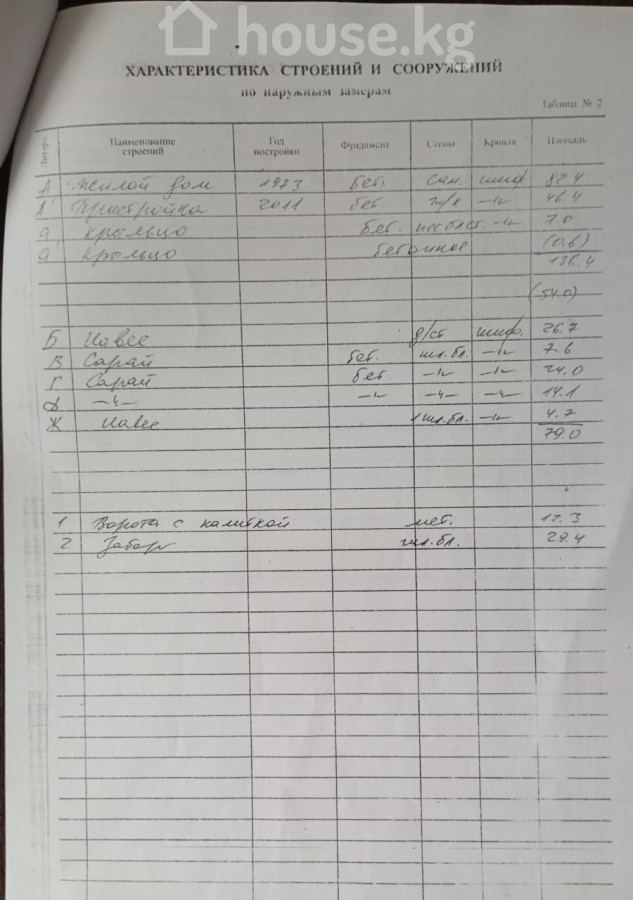 house.kg
ХАРАКТЕРИСТИКА СТРОЕНИЙ И СООРУЖЕНИЙ
по наружным замерам
Таблица № 2
Литера Наименование строений Год постройки Фундамент Стены Кровля Площадь
А Жилой дом 1973 бет. сам. шиф. 82.4
А' Пристройка 2011 бет —"— 46.4
а крыльцо бет. —"— 7.0
а крыльцо бетонное (0.6)
136.4
(54.0)
Б Навес д/ст шиф. 26.7
В Сарай бет. шл.бл. —"— 7.6
Г Сарай бет. —"— —"— 24.0
—"— —"— —"— —"— 14.1
Ж Навес 1 шл.бл. —"— 4.7
79.0
1 Ворота с калиткой мет. 12.3
2 Забор шл.бл. 29.4